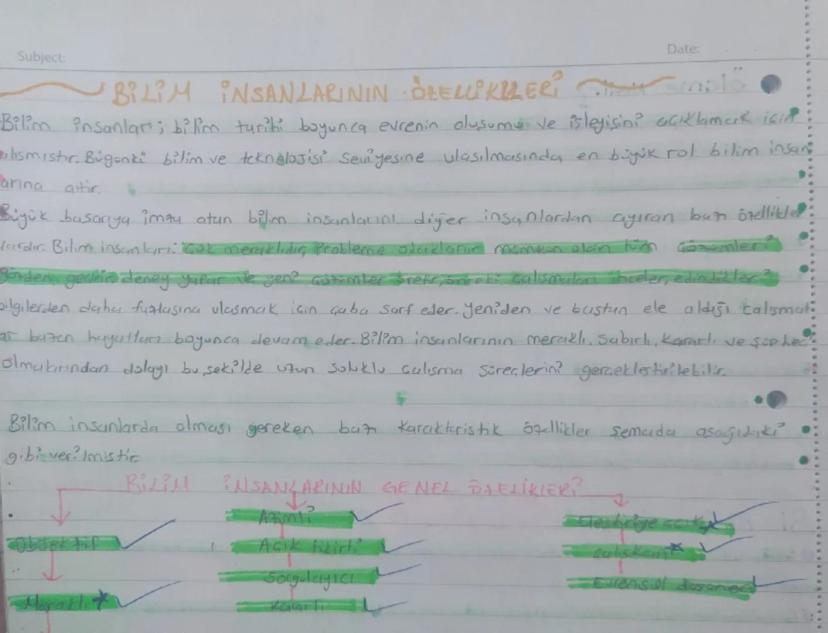 Subject: Date:
BİLİM İNSANLARININ ÖZELLİKLERİ
Bilim insanları; bilim tarihi boyunca evrenin oluşumu ve işleyişini açıklamak için
alışmıştır. Bugünki bilim ve teknolojisi seviyesine ulaşılmasında en büyük rol bilim insan
arına aitir.
Büyük başarıya imza atan bilim insanlarını diğer insanlardan ayıran bazı özellikler
lardır. Bilim insanları: Çok meraklıdır, Probleme odaklanır mümkün olan tüm çözümleri
gözden geçirir deney yapar ve yeni çözümler üretir, önceki çalışmaları inceler, edindikleri
bilgilerden daha fazlasına ulaşmak için çaba sarf eder. Yeniden ve baştan ele aldığı çalışmal
ar bazen hayatları boyunca devam eder. Bilim insanlarının meraklı, sabırlı, kararlı ve şüpheci
olmalarından dolayı bu şekilde uzun soluklu çalışma süreçlerini gerçekleştirilebilir.
Bilim insanlarda olması gereken bazı karakteristik özellikler şemada aşağıdaki
gibi verilmistir
BİLİM İNSANLARININ GENEL ÖZELİKLERİ
Azimli Eleştiriye açık
Objektif Açık fikirli çalışkan
Sorgulayıcı Evrensel
Meraklı Kararlı